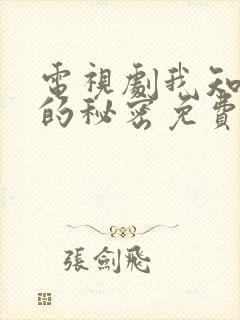 電視劇我知
的秘密免費
張劍飛